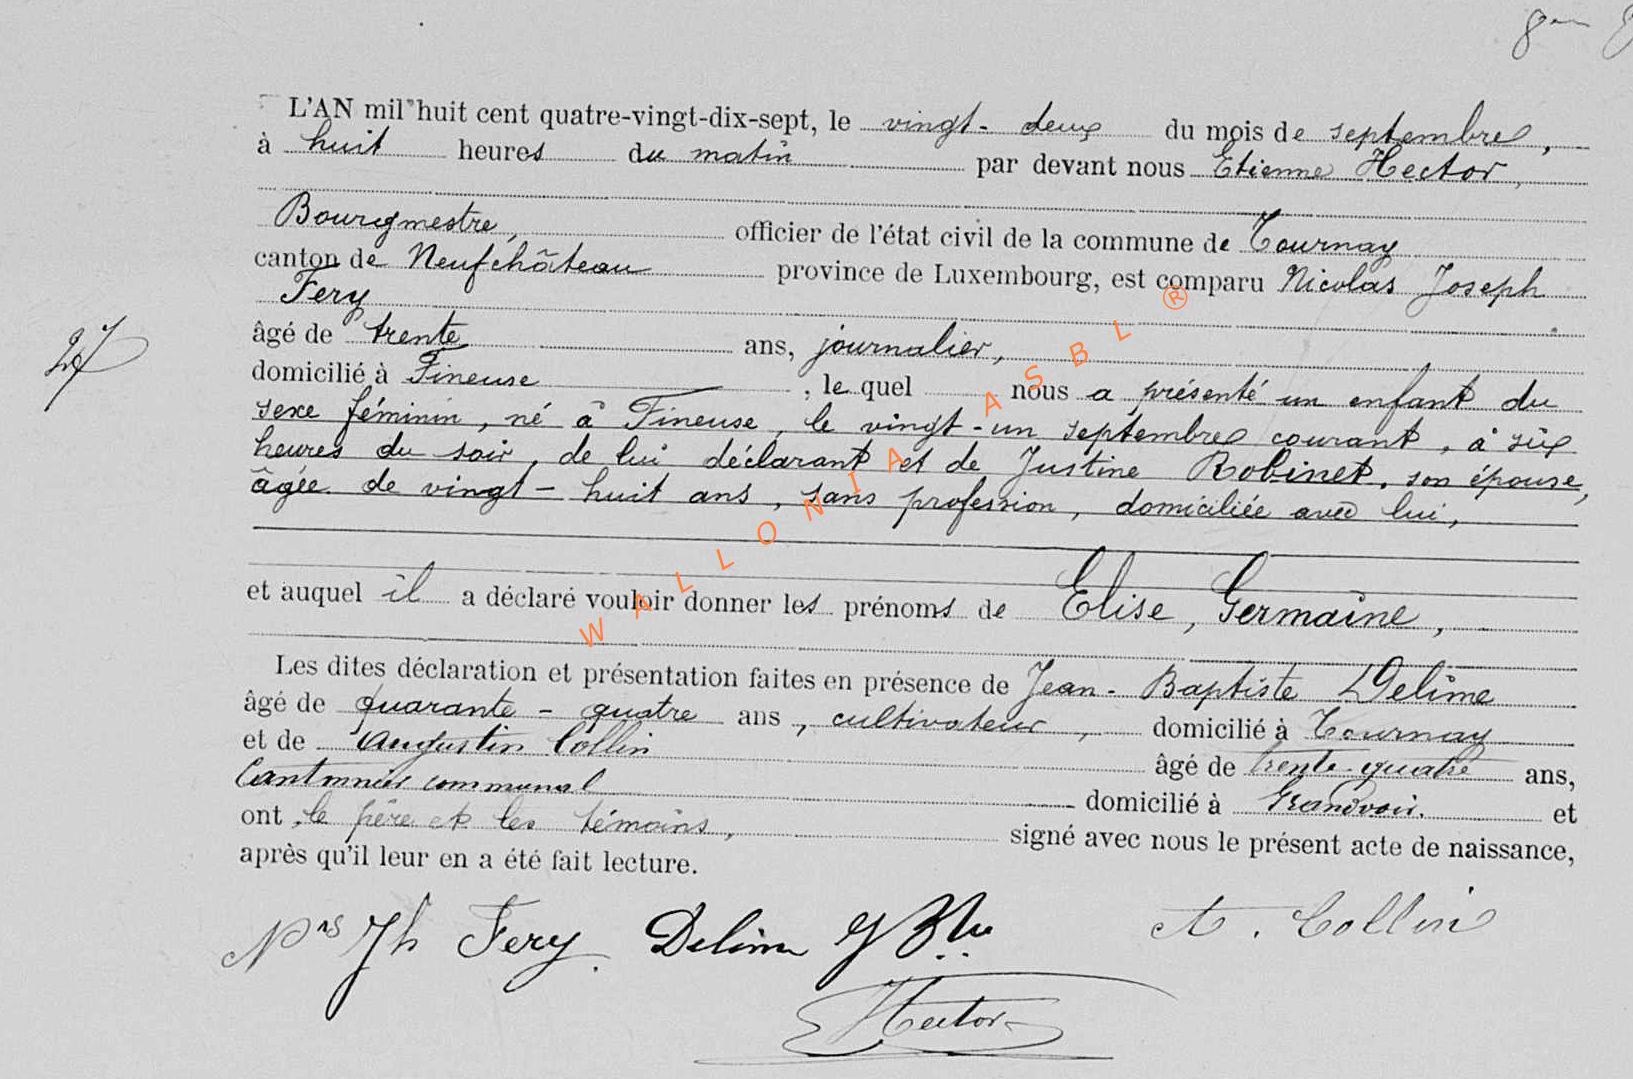 L'AN mil huit cent quatre-vingt-dix-sept, le vingt-deux du mois de septembre,
à huit heures du matin par devant nous Etienne Hector,
Bourgmestre, officier de l'état civil de la commune de Tournay
canton de Neufchâteau province de Luxembourg, est comparu Nicolas Joseph
Fery
âgé de trente ans, journalier,
27
domicilié à Fineuse, lequel nous a présenté un enfant du
sexe féminin, né à Fineuse, le vingt-un septembre courant, à six
heures du soir, de lui déclarant et de Justine Robinet, son épouse,
âgée de vingt-huit ans, sans profession, domiciliée avec lui,
et auquel il a déclaré vouloir donner les prénoms de Elise, Germaine,
Les dites déclaration et présentation faites en présence de Jean-Baptiste Delime
âgé de quarante-quatre ans, cultivateur, domicilié à Tournay
et de Augustin Collin âgé de trente-quatre ans,
Cantonnier communal domicilié à Grandvoir. et
ont le père et les témoins, signé avec nous le présent acte de naissance,
après qu'il leur en a été fait lecture.
Ns Jh Fery. Delime J Bte A. Collin
Hector
WALLONIA ASBL ®